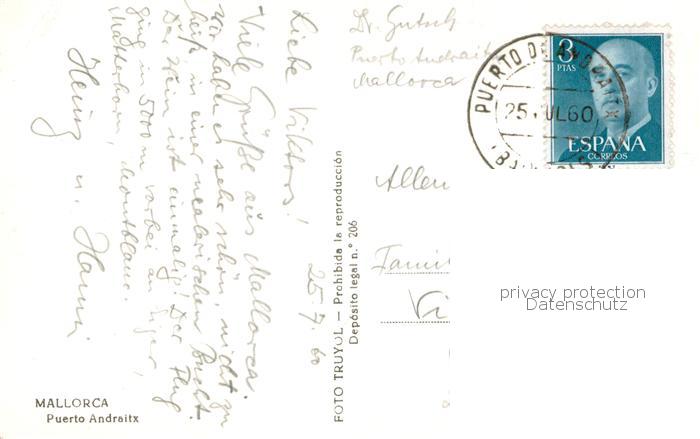 25.7.60
Liebe Viktors!
Viele Grüße aus Mallorca.
Wir haben es sehr schön, nicht zu
heiß in einer malerischen Bucht.
Der Wein ist einmalig! Der Flug
ging in 5000 m vorbei an Eiger,
Matterhorn, Montblanc.
Heinz u. Hanni
MALLORCA
Puerto Andraitx
FOTO TRUYOL — Prohibida la reproducción
Depósito legal n.° 206
Dr. Gutsch
Puerto Andraitx
Mallorca
3
PTAS
ESPAÑA
CORREOS
PUERTO DE ANDRAITX
25 JUL 60
Famil
Vi
privacy protection
Datenschutz